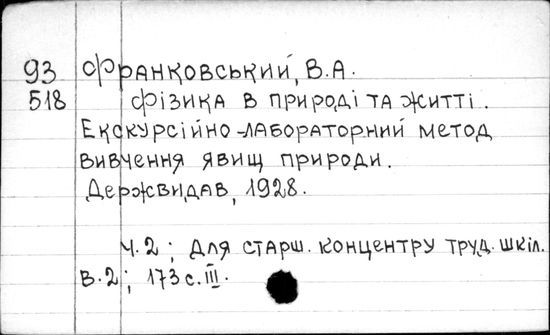 93 Франковський, В.А.
518 Фізика в природі та житті.
Екскурсійно-лабораторний метод
вивчення явищ природи.
Держвидав, 1928.
Ч.2; Для старш. концентру труд. шкіл.
В.2; 173 с. III.